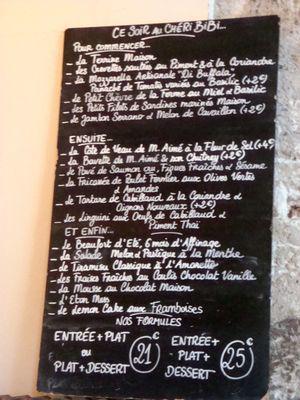 CE SOIR AU CHÉRI BIBI...
POUR COMMENCER...
_ la Terrine Maison
_ les Crevettes sautées au Piment & à la Coriandre
_ la Mozzarella Artisanale "Di Buffala"
Panaché de Tomates variés au Basilic (+2€)
_ le Petit Chèvre de la Ferme au Miel & Basilic
_ les Petits Filets de Sardines marinés Maison
_ le Jambon Serrano & Melon de Cavaillon (+2€)
ENSUITE...
_ la Côte de Veau de M. Aimé à la Fleur de Sel (+4€)
_ la Bavette de M. Aimé & son Chutney (+2€)
_ le Pavé de Saumon au Figues Fraîches & Sésame
_ la Fricassée de Poulet Fermier aux Olives Vertes
& Amandes
_ le Tartare de Cabillaud à la Coriandre &
Oignons Nouveaux (+2€)
_ les Linguini aux Oeufs de Cabillaud &
Piment Thaï
ET ENFIN...
_ le Beaufort d'Eté, 6 mois d'Affinage
_ la Salade Melon & Pastèque à la Menthe
_ le Tiramisu Classique à l'Amaretto
_ les Fraises Fraîches au Coulis Chocolat Vanille
_ la Mousse au Chocolat Maison
_ l'Eton Mess
_ le Lemon Cake aux Framboises
NOS FORMULES
ENTRÉE + PLAT
ou
PLAT + DESSERT
21€
ENTRÉE +
PLAT +
DESSERT
25€